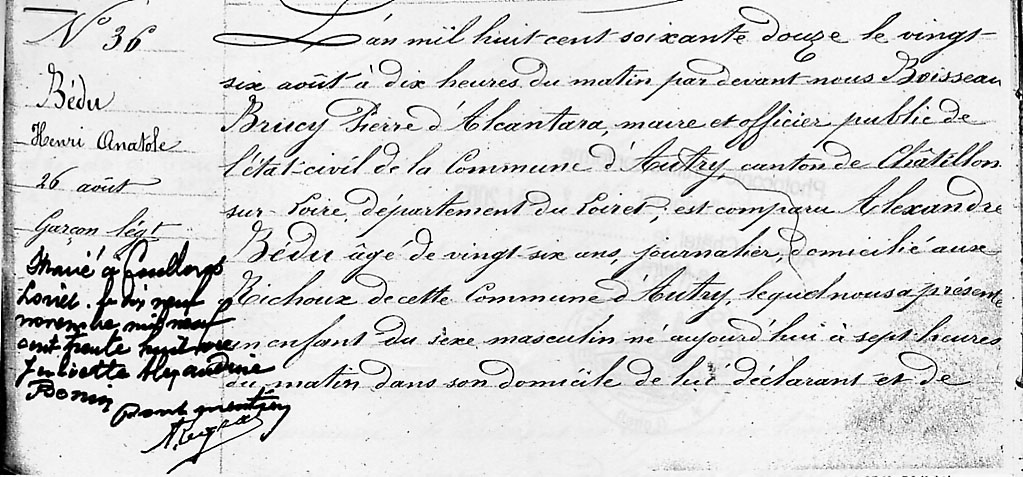 N° 36
Bédu
Henri Anatole
26 août
Garçon légt
Marié à Coullons
Loiret, le dix neuf
novembre mil neuf
cent trente huit avec
Juliette Alexandrine
Bonin
Dont mention
L'an mil huit cent soixante douze le vingt-
six août à dix heures du matin par devant nous Boisseau
Brucy Pierre d'Alcantara, maire et officier public de
l'état-civil de la Commune d'Autry, canton de Châtillon
sur-Loire, département du Loiret, est comparu Alexandre
Bédu âgé de vingt-six ans, journalier, domicilié aux
Richoux de cette Commune d'Autry, lequel nous a présenté
un enfant du sexe masculin né aujourd'hui à sept heures
du matin dans son domicile de lui déclarant et de